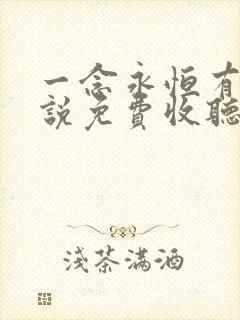 一念永恒有
説免費收聽
淺茶滿酒